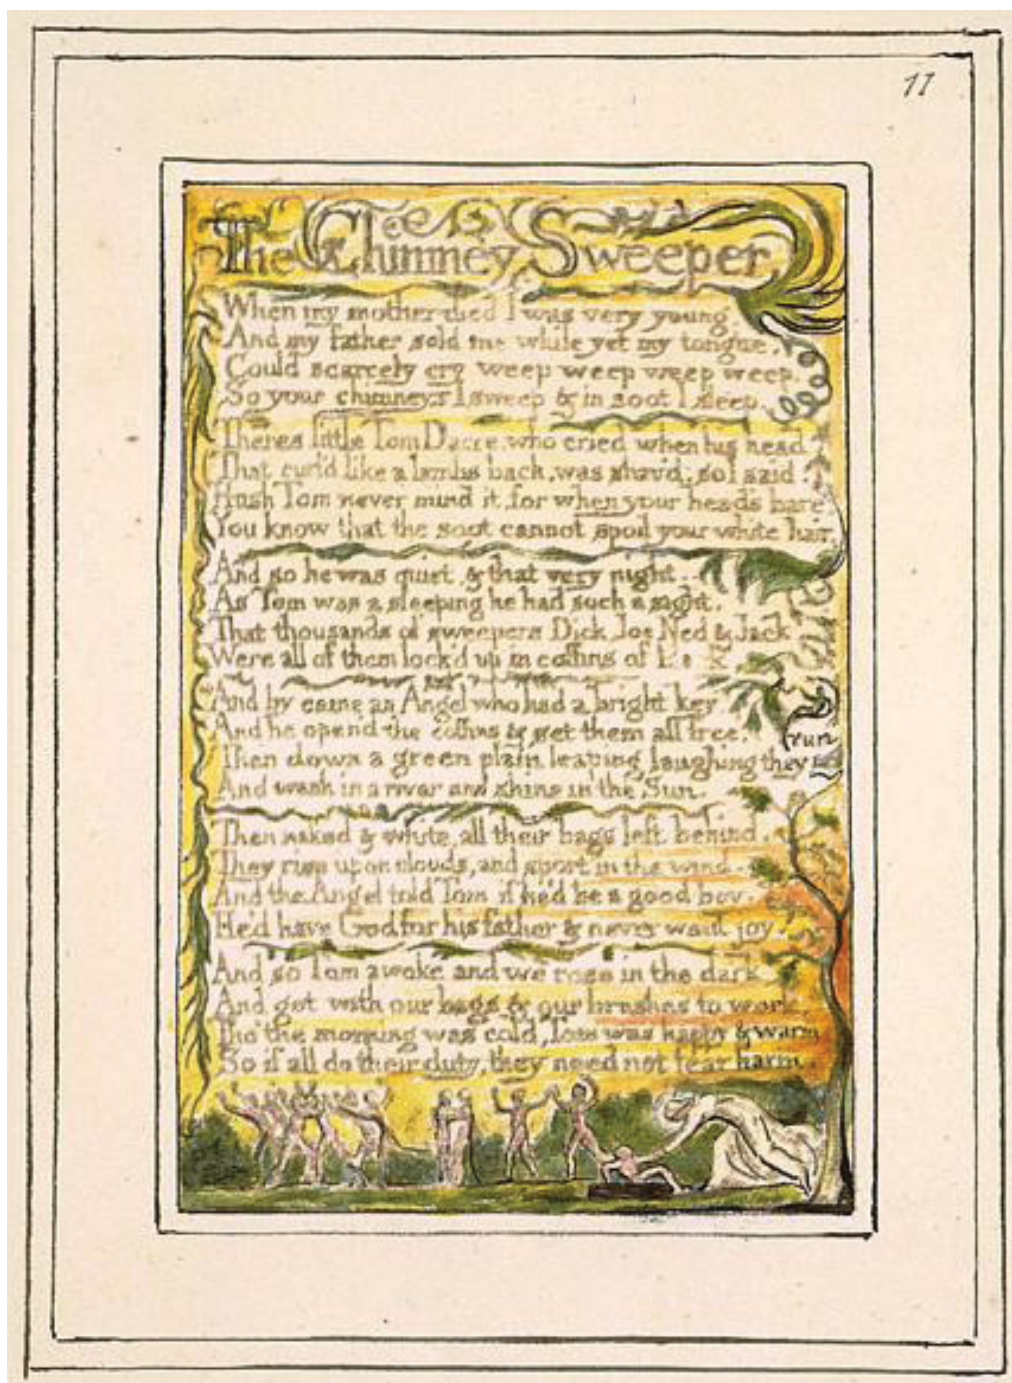 11
The Chimney Sweeper
When my mother died I was very young.
And my father sold me while yet my tongue.
Could scarcely cry weep weep weep weep.
So your chimneys I sweep & in soot I sleep.
Theres little Tom Dacre, who cried when his head
That curl'd like a lambs back, was shav'd, so I said.
Hush Tom never mind it, for when your head's bare,
You know that the soot cannot spoil your white hair.
And so he was quiet, & that very night.
As Tom was a sleeping he had such a sight.
That thousands of sweepers Dick, Joe, Ned & Jack
Were all of them lock'd up in coffins of
And by came an Angel who had a bright key
And he open'd the coffins & set them all free.
run
Then down a green plain leaping laughing they
And wash in a river and shine in the Sun.
Then naked & white, all their bags left behind.
They rise upon clouds, and sport in the wind.
And the Angel told Tom if he'd be a good boy.
He'd have God for his father & never want joy.
And so Tom awoke and we rose in the dark
And got with our bags & our brushes to work.
Tho' the morning was cold, Tom was happy & warm
So if all do their duty, they need not fear harm.